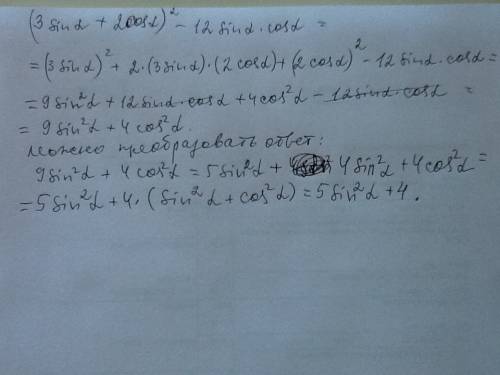 (3 sin α + 2 cos α)² − 12 sin α · cos α =
= (3 sin α)² + 2 · (3 sin α) · (2 cos α) + (2 cos α)² − 12 sin α · cos α =
= 9 sin²α + 12 sin α · cos α + 4 cos²α − 12 sin α · cos α =
= 9 sin²α + 4 cos²α.
Можно преобразовать ответ:
9 sin²α + 4 cos²α = 5 sin²α + 4 sin²α + 4 cos²α =
= 5 sin²α + 4 · (sin²α + cos²α) = 5 sin²α + 4.